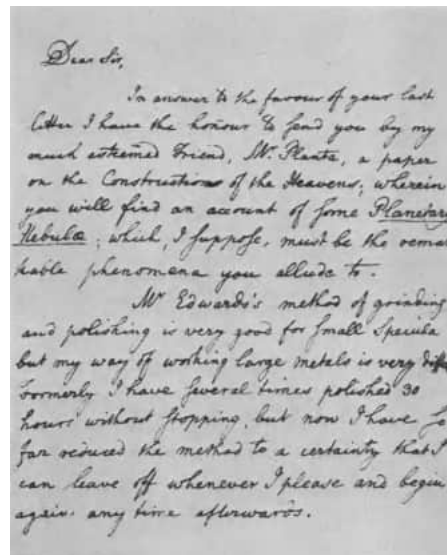 Dear Sir,
In answer to the favour of your last
letter I have the honour to send you by my
much esteemed Friend, Mr. Planta, a paper
on the Construction of the Heavens; wherein
you will find an account of some Planetary
Nebulæ; which, I suppose, must be the remar
kable phenomena you allude to.
Mr Edwards's method of grinding
and polishing is very good for small Specula
but my way of working large metals is very
Formerly I have several times polished 30
hours without stopping, but now I have so
far reduced the method to a certainty that I
can leave off whenever I please and begin
again any time afterwards.